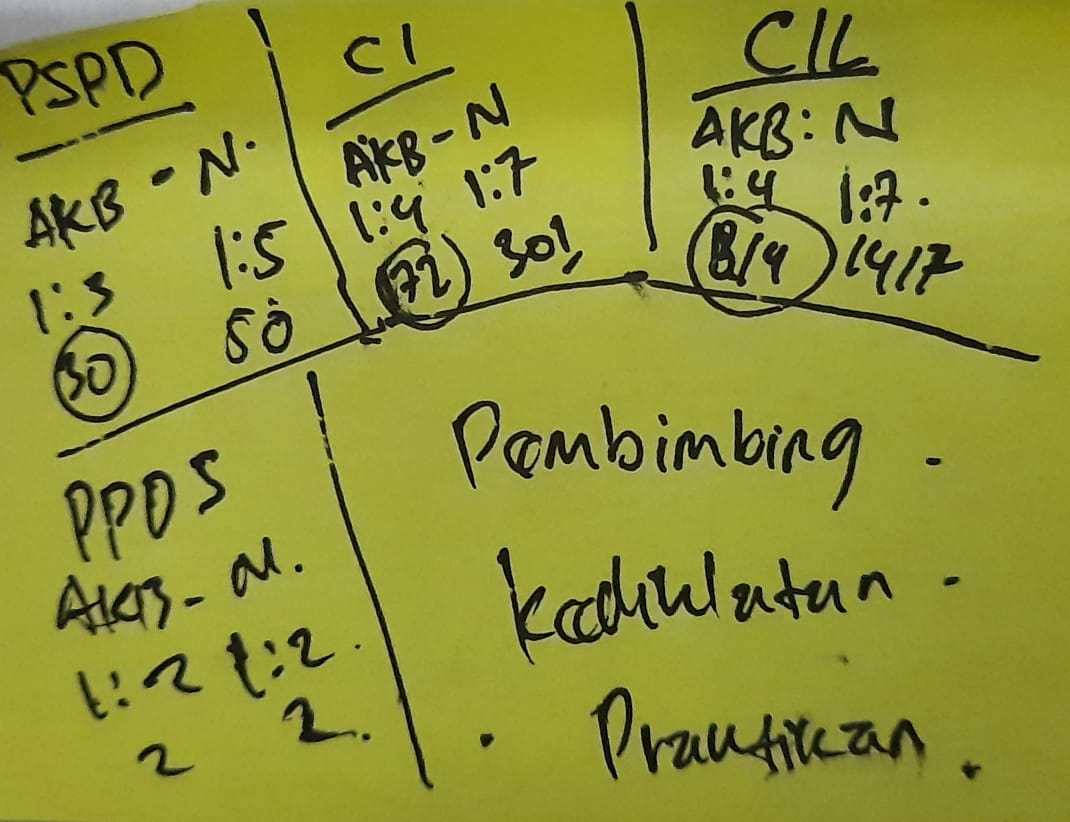 PSPD
AKB - N.
1:3 1:5
30 50
CI
AKB - N
1:4 1:7
72 301
CIL
AKB : N
1:4 1:7.
8/4 14/7
PPDS
AKB - N.
1:2 1:2.
2 2.
Pembimbing .
kediklatan .
. Praktikan .